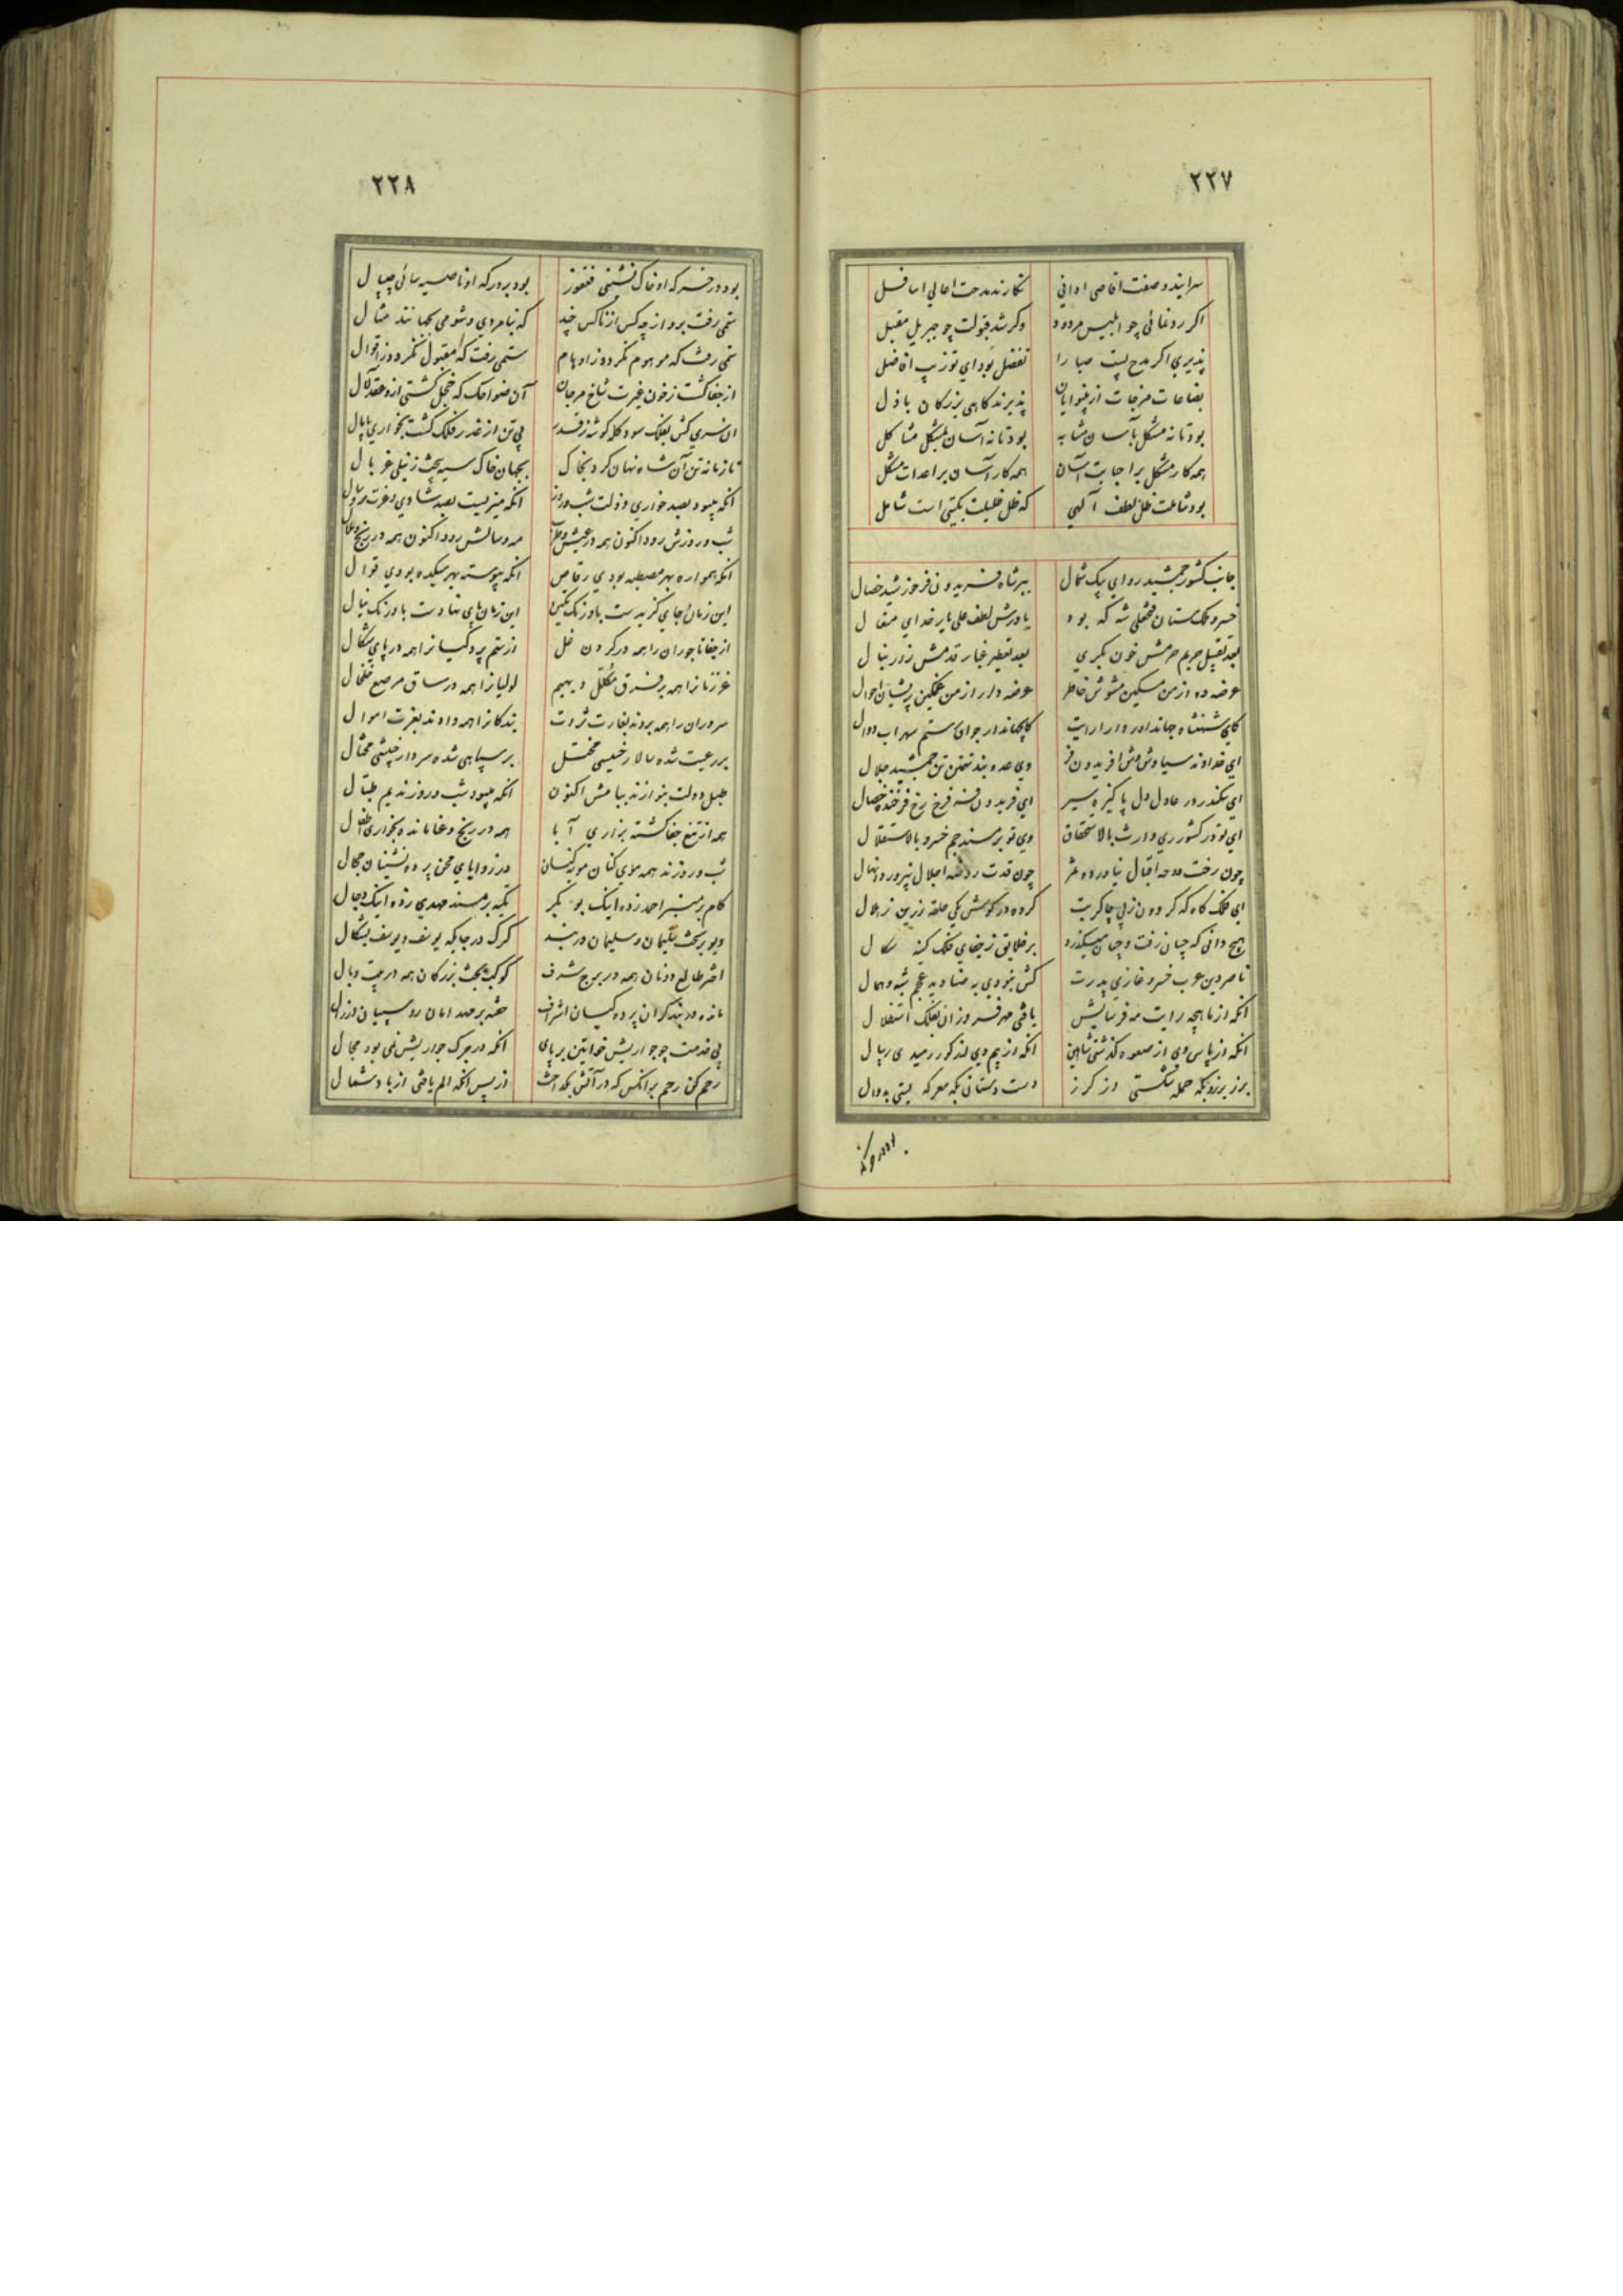 ٢٢٧
سرایند وصفت اقاصی ادانی نکارند مدحت اعالی اسافل
اکر رد نمائی چو ابلیس مردود وکر شد قبولت چو جبریل مقبل
پذیری اکر مدح پست صبا را تفضل بود ای تو زیب افاضل
بضاعات مزجات از بینوایان پذیرند کاهی بزرکان باذل
بود تا نه مشکل بآسان مشابه بود تا نه آسان بمشکل مشاکل
همه کار مشکل براحبابت آسان همه کار آسان براعدات مشکل
بود شاملت ظل لطف آلهی که ظل ظلیلت بکیتی است شامل
جانب کشور جمشید رو ای پیک شمال ببر شاه فریدون فر خورشید خصال
خسرو ملک ستان فتحعلی شه که بود یاورش لطف علی یار خدای متعال
بعد تقبیل حریم حرمش خون بکری بعد تعطیر غبار قدمش زور بنال
عرضه ده از من مسکین مشوش خاطر عرضه دار از من غمکین پریشان احوال
کای شهنشاه جهاندار دارا رایت کای جهاندار جوان رستم سهراب دوال
ای خداوند سیاوش وش افریدون فر وی عدو بند تهمتن تن جمشید جلال
ای سکندر در عادل دل پاکیزه سیر ای فریدون فر فرخ رخ فرخنده خصال
ای تو در کشور ری وارث بالاستحقاق وی تو بر مسند جم خسرو بالاستقلال
چون رخت دوحه اقبال نیاورده ثمر چون قدت روضه اجلال نپرورد نهال
ای فلک کاه که کردون ز پی چاکریت کرده در کوش یکی حلقه زرین ز هلال
هیچ دانی که چسان رفت و چسان میکذرد بر خلایق ز جفای فلک کینه سکال
ناصر دین عرب خسرو غازی پدرت کش نبودی به صنادید عجم شبه و همال
انکه از ماهچه رایت مه فرسایش یافتی مهر فروزان بفلک استقلال
انکه از پاس وی از صعوه کذشتی شاهین انکه از بیم وی از کور رمیدی ریبال
برز برزو بکه حمله شکستی از کرز دست دستان بکه معرکه بستی بدوال
٢٢٨
بود در خر که او خاک نشینی فغفور بود بر درکه او ناصیه سائی چیپال
ستمی رفت برو از چه کس از ناکس چند که بنامردی و شومی بجهانند مثال
ستمی رفت که موهوم نکردد ز اوهام ستمی رفت که مقبول نکردد ز اقوال
از جفا کشت ز خون غیرت شاخ مرجان آن ضواحک که خجل کشتی ازو عقد لآل
ان سری کش بفلک سود کله کوشه ز قدر بی تن از غدر فلک کشت بخواری پامال
تا زمانه تن آن شاه نهان کرد بخاک بجهان خاک سیه بیخت ز نیلی غربال
انکه میبود بصد خواری و ذلت شب و روز انکه میزیست بصد شادی و عزت مه و سال
شب و روزش رود اکنون همه در عیش و طرب مه و سالش رود اکنون همه در رنج و ملال
انکه همواره بهر مصطبه بودی رقاص انکه پیوسته بهر میکده بودی قوال
این زمان جای کزیدست باورنک نکین این زمان پای نهادست باورنک نیال
از جفا تاجوران را همه در کردن غل از ستم پردکیانرا همه در پای شکال
غرزنانرا همه بر فرق مکلل دیهیم لولیانرا همه در ساق مرصع خلخال
سروران را همه بردند بغارت ثروت بندکانرا همه دادند بعزت اموال
بر رعیت شده سالار خسیسی مختل بر سپاهی شده سردار خبیثی محتال
طبل دولت بنوازند ببامش اکنون انکه میبود شب و روز ندیم طبال
همه از تیغ جفا کشته بزاری آبا همه در رنج و عنا مانده بخواری اطفال
شب و روزند همه موی کنان مویه کنان در زوایای محن پرده نشینان حجال
کام بر منبر احمد زده اینک بوبکر تکیه بر مسند مهدی زده اینک دجال
دیو بر تخت سلیمان و سلیمان در بند کرک در جایکه یوسف و یوسف بشکال
اختر طالع دونان همه در برج شرف کوکب بخت بزرکان همه در بیت وبال
مانده در بند کران پرده کیان اشراف خفته بر مهد امان روسپیان و زرال
پی خدمت چو جواریش خواتین بر پای انکه در جرک جواریش نمی بود مجال
رحم کن رحم بر انکس که در آتش بکداخت از پس انکه الم یافتی از باد شمال